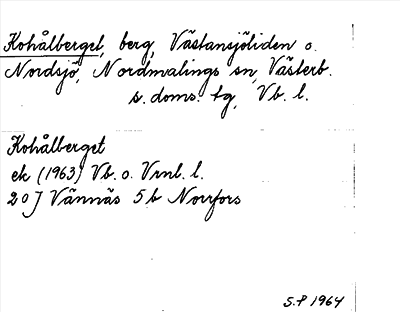 Kohålberget, berg, Västansjöliden o.
Nordsjö, Nordmalings sn, Västerb.
s. doms. tg, Vb. l.
Kohålberget
ek (1963) Vb. o. Vrnl. l.
20 J Vännäs 5b Norrfors
S.P 1964